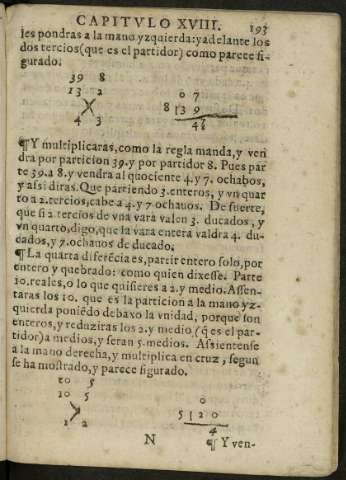 CAPITVLO XVIII. 193
les pondras a la mano yzquierda: y adelante los
dos tercios (que es el partidor) como parece fi-
gurado.
39 8
13 2 0 7
8 | 3 9
4 3 4
¶ Y multiplicaras, como la regla manda, y ven
dra por particion 39. y por partidor 8. Pues par
te 39. a 8. y vendra al quociente 4. y 7. ochabos,
y assi diras. Que partiendo 3. enteros, y vn quar
to a 2. tercios, cabe a 4. y 7 ochauos. De suerte,
que si 2 tercios de vna vara valen 3. ducados, y
vn quarto, digo, que la vara entera valdra 4. du-
cados, y 7. ochauos de ducado.
¶ La quarta diferẽcia es, partir entero solo, por
entero y quebrado: como quien dixesse. Parte
10. reales, o lo que quisieres a 2. y medio. Assen-
taras los 10. que es la particion a la mano yz-
quierda poniẽdo debaxo la vnidad, porque son
enteros, y reduziras los 2. y medio (q̃ es el par-
tidor) a medios, y seran 5. medios. Assientense
a la mano derecha, y multiplica en cruz, segun
se ha mostrado, y parece figurado.
10 5
10 5 0
5 | 2 0
1 2 4
N ¶ Y ven-